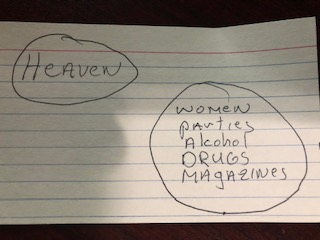 HEAVEN
WOMEN
parties
Alcohol
DRUGS
MAgAZINES